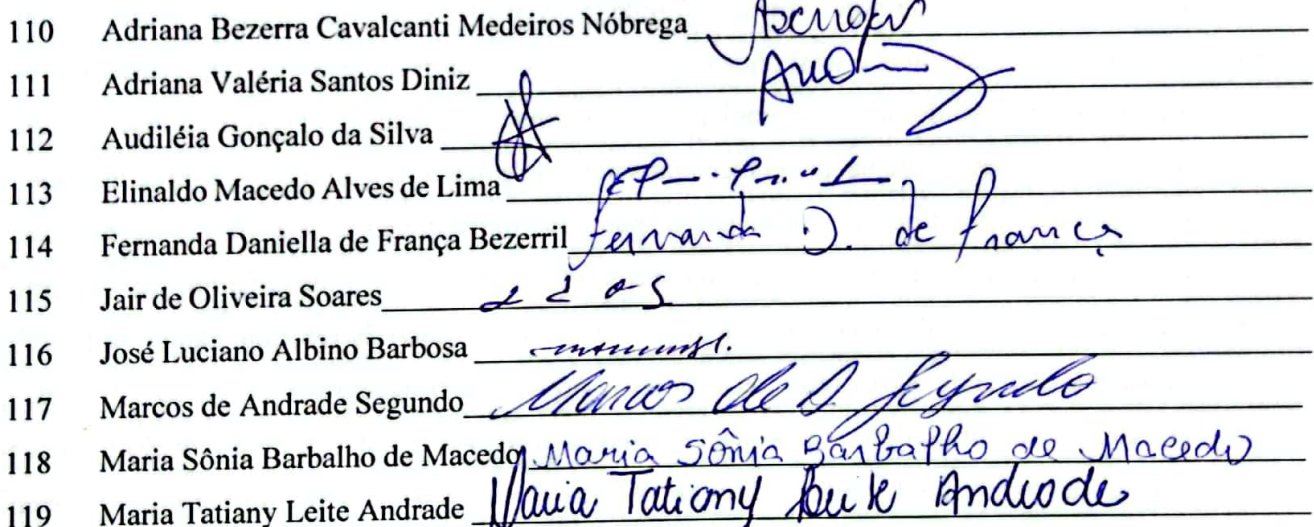 110 Adriana Bezerra Cavalcanti Medeiros Nóbrega
111 Adriana Valéria Santos Diniz
112 Audiléia Gonçalo da Silva
113 Elinaldo Macedo Alves de Lima
114 Fernanda Daniella de França Bezerril Fernanda D. de França
115 Jair de Oliveira Soares
116 José Luciano Albino Barbosa
117 Marcos de Andrade Segundo Marcos de A. Segundo
118 Maria Sônia Barbalho de Macedo Maria Sônia Barbalho de Macedo
119 Maria Tatiany Leite Andrade Maria Tatiany Leite Andrade